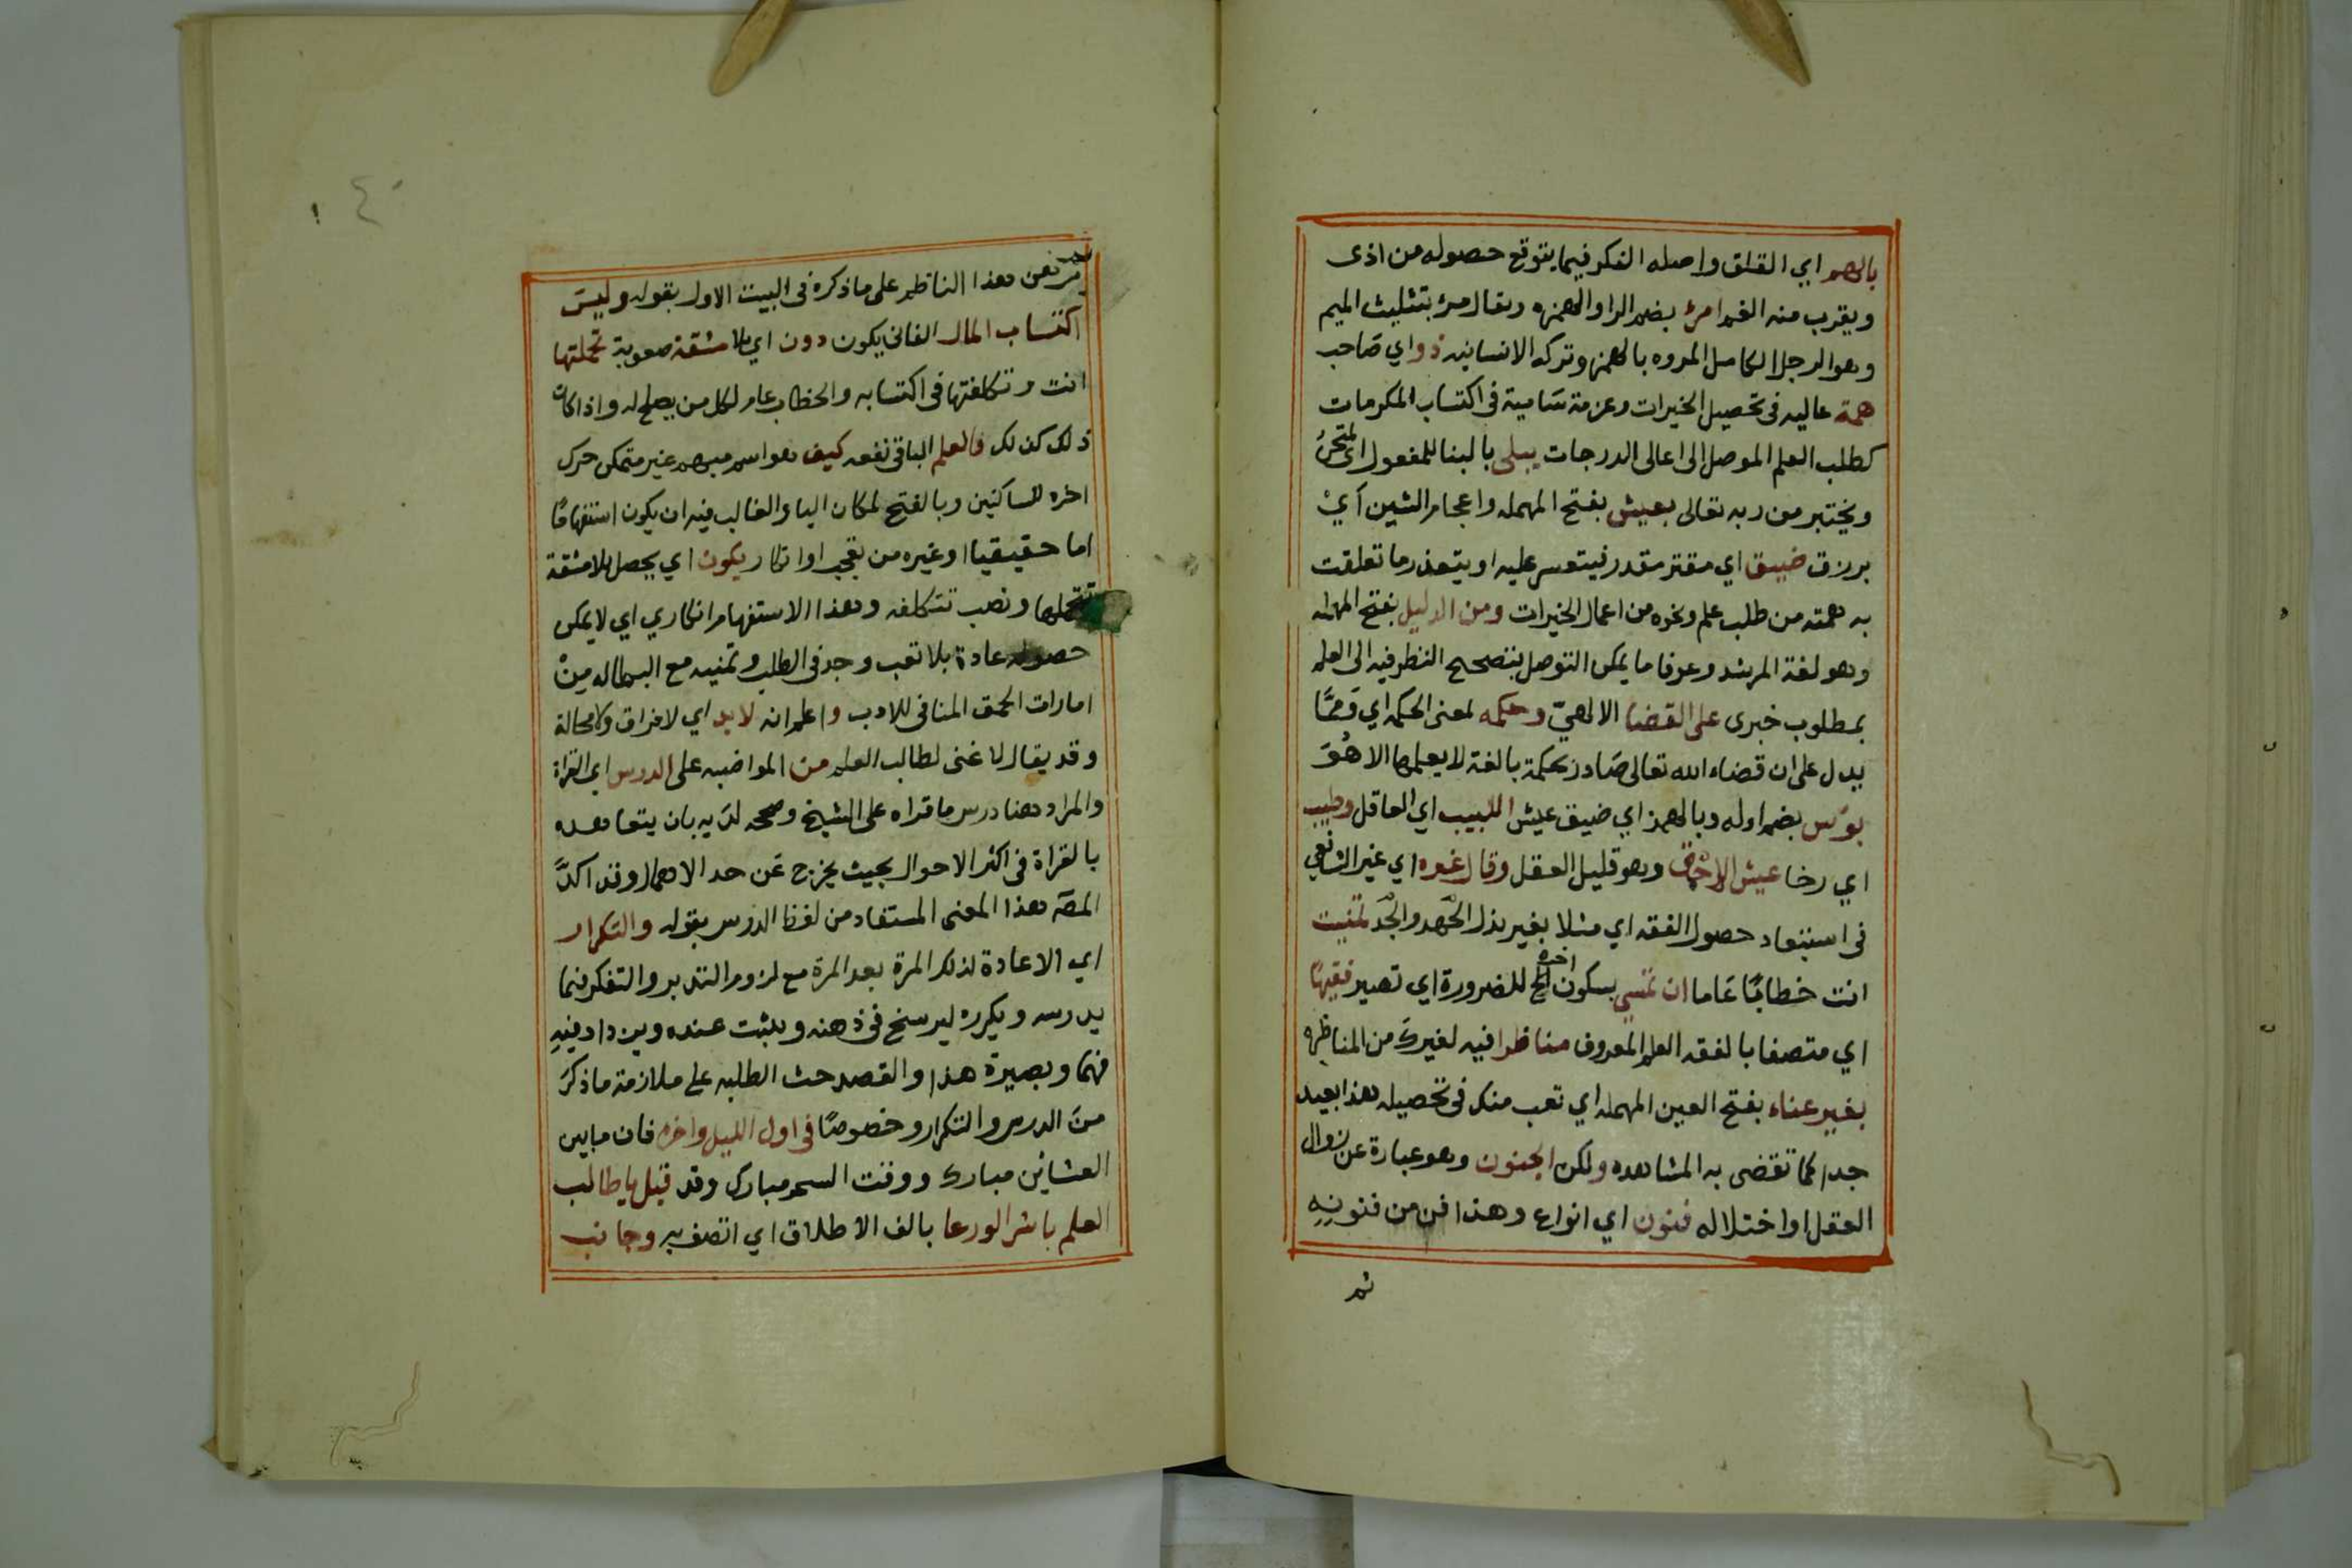 بالهم اي القلق واصله الفكر فيما يتوقع حصوله من اذى
ويقرب منه الغم امرؤ بضم الرا والهمزه ويقال مرؤ بتثليث الميم
وهو الرجل الكامل المروه بالهمز وتركه الانسانيه ذو اي صاحب
همة عاليه في تحصيل الخيرات وعزمة سامية في اكتساب المكرمات
كطلب العلم الموصل الى اعالى الدرجات يبلى بالبنا للمفعول اي يمتحن
ويختبر من ربه تعالى بعيش بفتح المهمله واعجام الشين اي
برزق ضيق اي مقتر مقدر فيتعسر عليه او يتعذر ما تعلقت
به همته من طلب علم ونحوه من اعمال الخيرات ومن الدليل بفتح المهمله
وهو لغة المرشد وعرفا ما يمكن التوصل بتصحيح النظر فيه الى العلم
بمطلوب خبرى على القضا الالهيّ وحكمه لمعنى الحكم اي
يدل على ان قضاء الله تعالى صادر بحكمة بالغة لا يعلمها الا هُوَ
بؤس بضم اوله وبالهمز اي ضيق عيش اللبيب اي العاقل وطيب
اي رخا عيش الاحمق وهو قليل العقل وقال غيره اي غير الشافعي
في استبعاد حصول الفقه اي مثلا بغير بذل الجُهد والجِّد تمنيت
انت خطابًا عاما ان تمسي بسكون اخره للضرورة اي تصير فقيهًا
اي متصفا بالفقه العلم المعروف مناظرا فيه لغيرك من المناظره
بغير عناء بفتح العين المهمله اي تعب منك في تحصيله هذا بعيد
جدا كما تقضى به المشاهده ولكن الجنون وهو عبارة عن زوال
العقل او اختلاله فنون اي انواع وهذا فن من فنونِهِ
ثم
٤٠
ثم نص هذا الناظم على ما ذكره في البيت الاول بقوله وليسَ
اكتساب المال الفانى يكون دون اي بلا مشقة صعوبة تحملتها
انت وتكلفتها في اكتسابه والخطاب عام لكل من يصلح له واذا كان
ذلك كذلك فالعلم الباقي نفعه كيف هو اسم مبهم غير متمكن حرك
اخره للساكنين وبالفتح لمكان اليا والغالب فيه ان يكون استفهامًا
اما حقيقيا او غيره من تعجب او انكار يكون اي يحصل بلا مشقة
تتحملها ونصب تتكلفه وهذا الاستفهام انكاري اي لا يمكن
حصوله عادة بلا تعب وجد في الطلب وتمنيه مع البطاله مِنْ
امارات الحمق المنافى للادب واعلم انه لا بد اي لا فراق ولا محالة
وقد يقال لا غنى لطالب العلم من المواضبه على الدرس اي القراة
والمراد هنا درس ما قراه على الشيخ وصححه لديه بان يتعاهده
بالقراة في اكثر الاحوال بحيث يخرج عن حد الاهمال وقد اكدَّ
المصَ هذا المعنى المستفاد من لفظ الدرس بقوله والتكرار
اي الاعادة لذلك المرة بعد المرة مع لزوم التدبر والتفكر فيما
يدرسه ويكرره ليرسخ في ذهنه ويثبت عنده ويزداد فيهِ
فهما وبصيرة هذا والقصد حث الطلبه على ملازمة ما ذكرَ
منَ الدرس والتكرار وخصوصًا في اول الليل واخره فان ما بين
العشائين مبارك ووقت السحر مبارك وقد قيل يا طالب
العلم باشر الورعا بالف الاطلاق اي اتصف به وجانب